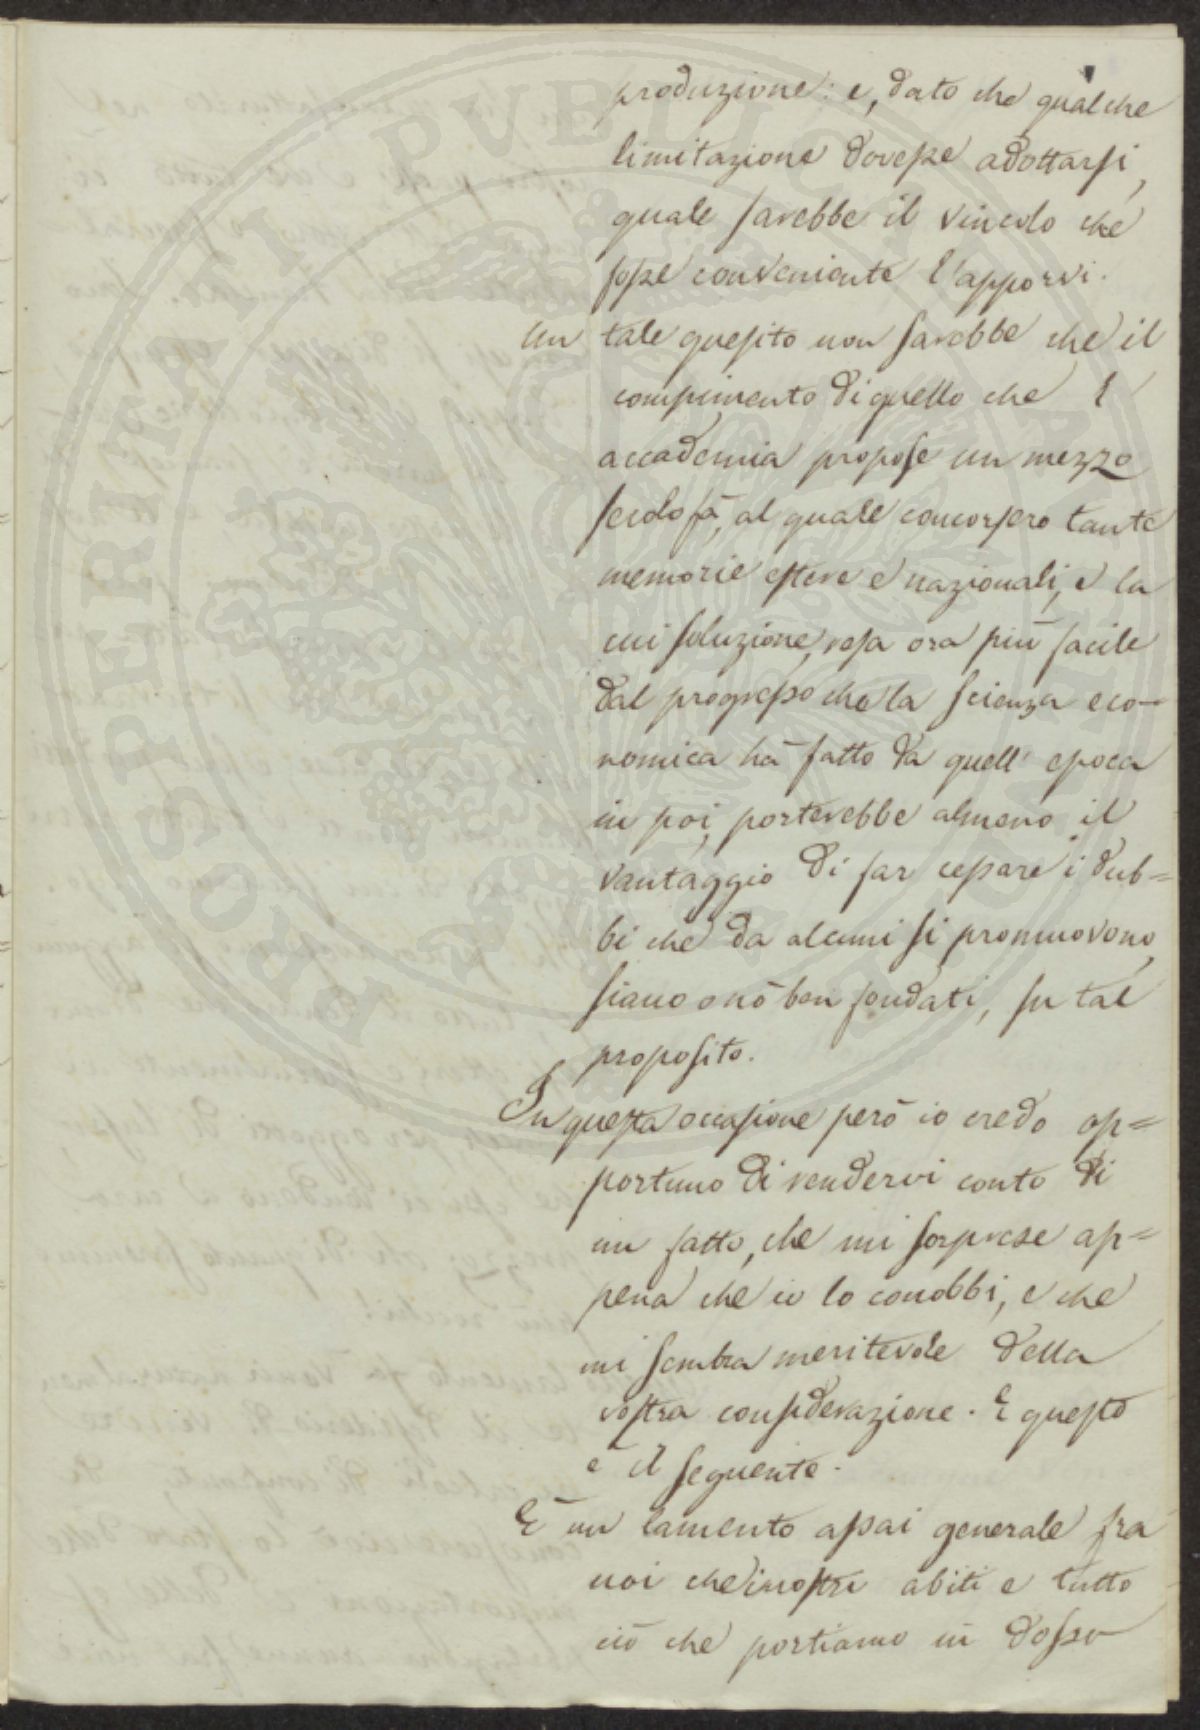 produzione: e, dato che qualche
limitazione dovesse adottarsi,
quale sarebbe il vincolo che
fosse conveniente l'apporvi.
Un tale quesito non sarebbe che il
compimento di quello che l'
accademia propose un mezzo
secolo fà, al quale concorsero tante
memorie estere e nazionali, e la
cui soluzione, resa ora più facile
dal progresso che la scienza eco-
nomica hà fatto da quell' epoca
in poi, porterebbe almeno il
vantaggio di far cessare i dub=
bi che da alcuni si promuovono,
siano o nò ben fondati, su tal
proposito.
In questa occasione però io credo op=
portuno di rendervi conto di
un fatto, che mi sorprese ap=
pena che io lo conobbi, e che
mi sembra meritevole della
vostra considerazione. E questo
e il seguente.
È un lamento assai generale fra
noi che i nostri abiti e tutto
ciò che portiamo in dosso
PROSPERITATI PUBLICAE AUGENDAE